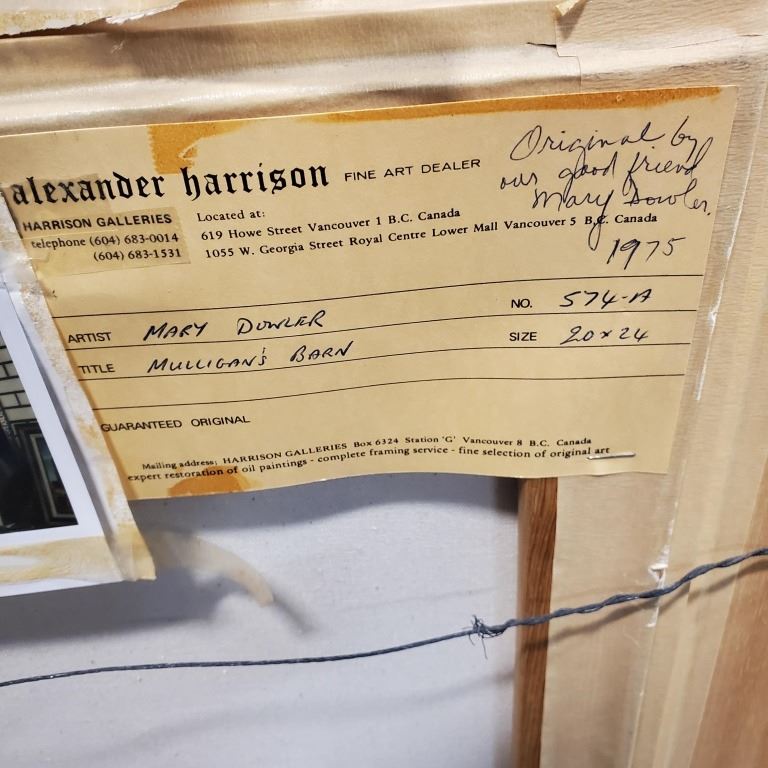 alexander harrison FINE ART DEALER
Original by
our good friend
Mary Dowler.
1975
HARRISON GALLERIES
telephone (604) 683-0014
(604) 683-1531
Located at:
619 Howe Street Vancouver 1 B.C. Canada
1055 W. Georgia Street Royal Centre Lower Mall Vancouver 5 B.C. Canada
NO. 574-A
ARTIST MARY DOWLER
SIZE 20x24
TITLE MULLIGAN'S BARN
GUARANTEED ORIGINAL
Mailing address: HARRISON GALLERIES Box 6324 Station 'G' Vancouver 8 B.C. Canada
expert restoration of oil paintings - complete framing service - fine selection of original art